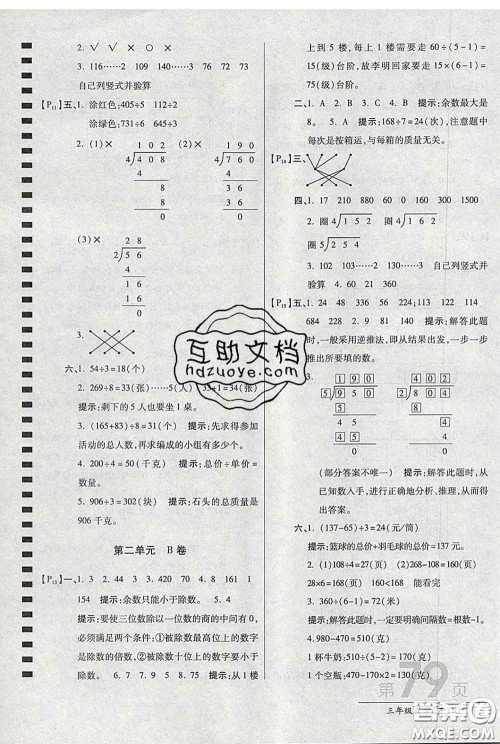 2. √ √ × ○ ×
3. 116……2 109 140……3 76 72 73
自己列竖式并验算
【P₁₁】五、1. 涂红色:405÷5 112÷2
涂绿色:731÷6 645÷3
2. (1)× (2)×
1 0 2 1 9 0
4 4 0 8 4 7 6 0
4 4
8 3 6
8 3 6
0 0
(3)×
2 8
2 5 6
4
1 6
1 6
0
3.
六、1. 54÷3=18(个)
2. 269÷8=33(张)……5(人) 33+1=34(张)
提示:剩下的 5 人也要坐 1 桌。
3. (165+83)÷8=31(个) 提示:先求得参加
活动的总人数,再求编成的小组有多少个。
4. 200÷4=50(千克) 提示:总价÷单价=
数量。
5. 906÷3=302(块) 提示:石头的总质量是
906 千克。
第二单元 B 卷
【P₁₃】一、1. 3 2. 44 3 3. 200 4. 8 161 1
154 提示:余数只能小于除数。 5. 4 3
提示:要使三位数除以一位数的商的中间有 0,
必须满足两个条件:①被除数最高位上的数字
是除数的倍数,②被除数十位上的数字要小于
除数。 6. 7 7. 9 5 8. 75 提示:从 1 楼
上到 5 楼,每上 1 个楼层需要走 60÷(5-1)=
15(级)台阶。故李明回家要走 15×(6-1)=
75(级)台阶。
二、1. A 2. B 3. C 4. B 提示:余数最大是
8。 5. A 提示:168÷7=24(次),注意题中
每次是按箱运,与每箱的质量无关。
【P₁₄】三、
四、1. 17 210 880 60 0 160 300 1500
2. 圈 4 1 5 2 圈 5 2 5 4
3. 102 103……2 130……3 自己列竖式并
验算 4. 60 21 35
【P₁₅】五、1. 24 48 336 236 2. 57 114 104
684 228 9 91 88 提示:解答此题
时,一般采用逆推法,即从结果出发,一步一步
推出所要填的数。
3.
1 9 0 4 0 2
5 9 5 0 2 8 0 4
5 8
4 5 4
4 5 4
0 0
(部分答案不唯一) 提示:解答此题时,从已
知数入手,进行正确地分析、推理,从而得
出答案。
六、1. (137-65)÷3=24(元/筒)
提示:篮球的总价+羽毛球的总价=137 元。
2. (1)108÷4=27(箱) (2)170÷6=28(箱)……2(个)
28×6=168(个) 3. 168÷8=21(箱)
3. 360÷(6-1)=72(米)
提示:解答此题时,一定要明确间隔数=根数-1。
4. 980-470=510(克)
1 杯牛奶:510÷(5-2)=170(克)
1 个空瓶:470-170×2=130(克)
第79页
三年级
互助文档
hdzuoye.com
答案圈
MXQE.COM